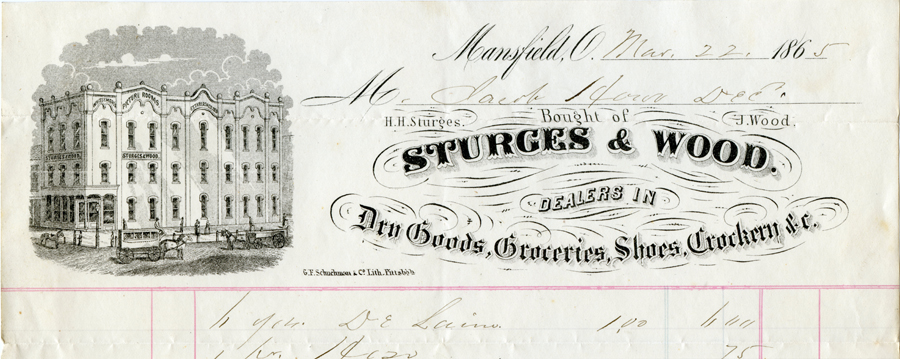 Mansfield, O. Mar. 22. 1865
M. Jacob Dec.
H.H. Sturges. Bought of J. Wood.
STURGES & WOOD.
DEALERS IN
Dry Goods, Groceries, Shoes, Crockery &c.
STURGES & WOOD.
G.F. Schuchman & Co. Lith. Pittsbgh
4 yds. De Laine 100 4 00
1 Hose 75